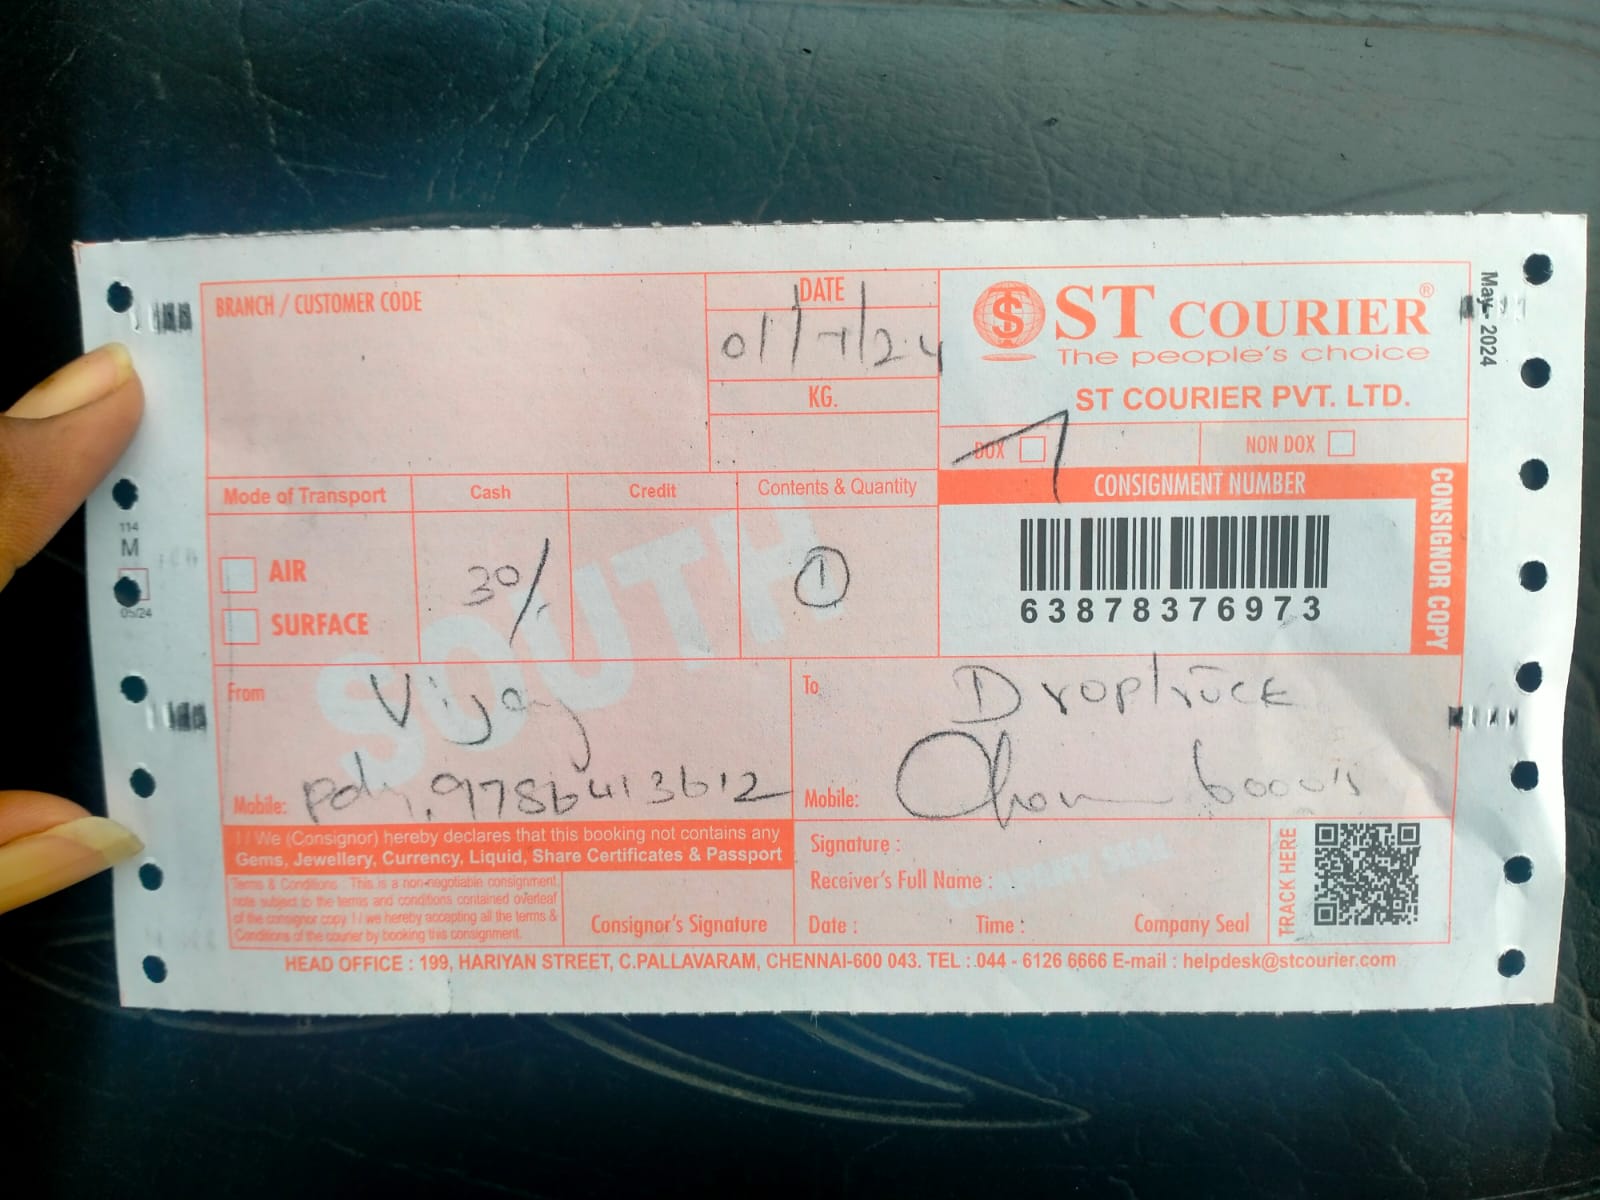 BRANCH / CUSTOMER CODE
DATE
01/7/24
KG.
ST COURIER®
The people's choice
ST COURIER PVT. LTD.
May - 2024
DOX
NON DOX
Mode of Transport
Cash
Credit
Contents & Quantity
CONSIGNMENT NUMBER
CONSIGNOR COPY
AIR
SURFACE
30/-
1
63878376973
114
M
05/24
SOUTH
From
Vijay
Mobile: pdy. 9786413612
To
Droptruck
Mobile: 600018
I / We (Consignor) hereby declares that this booking not contains any
Gems, Jewellery, Currency, Liquid, Share Certificates & Passport
Terms & Conditions : This is a non-negotiable consignment,
note subject to the terms and conditions contained overleaf
of the consignor copy. I / we hereby accepting all the terms &
Conditions of the courier by booking this consignment.
Consignor's Signature
Signature :
Receiver's Full Name :
Date :
Time :
Company Seal
COMPANY SEAL
TRACK HERE
HEAD OFFICE : 199, HARIYAN STREET, C.PALLAVARAM, CHENNAI-600 043. TEL : 044 - 6126 6666 E-mail : helpdesk@stcourier.com